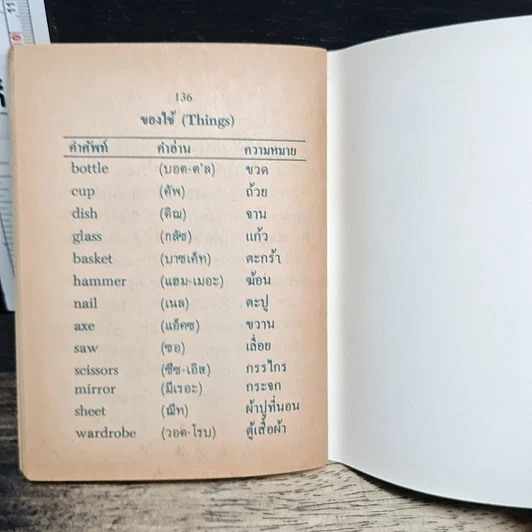 136
ของใช้ (Things)
คำศัพท์ คำอ่าน ความหมาย
bottle (บอต-ต'ล) ขวด
cup (คัพ) ถ้วย
dish (ดิฌ) จาน
glass (กลัซ) แก้ว
basket (บาซเค็ท) ตะกร้า
hammer (แฮม-เมอะ) ฆ้อน
nail (เนล) ตะปู
axe (แอ็คซ) ขวาน
saw (ซอ) เลื่อย
scissors (ซีซ-เอิส) กรรไกร
mirror (มีเรอะ) กระจก
sheet (ฌีท) ผ้าปูที่นอน
wardrobe (วอด-โรบ) ตู้เสื้อผ้า